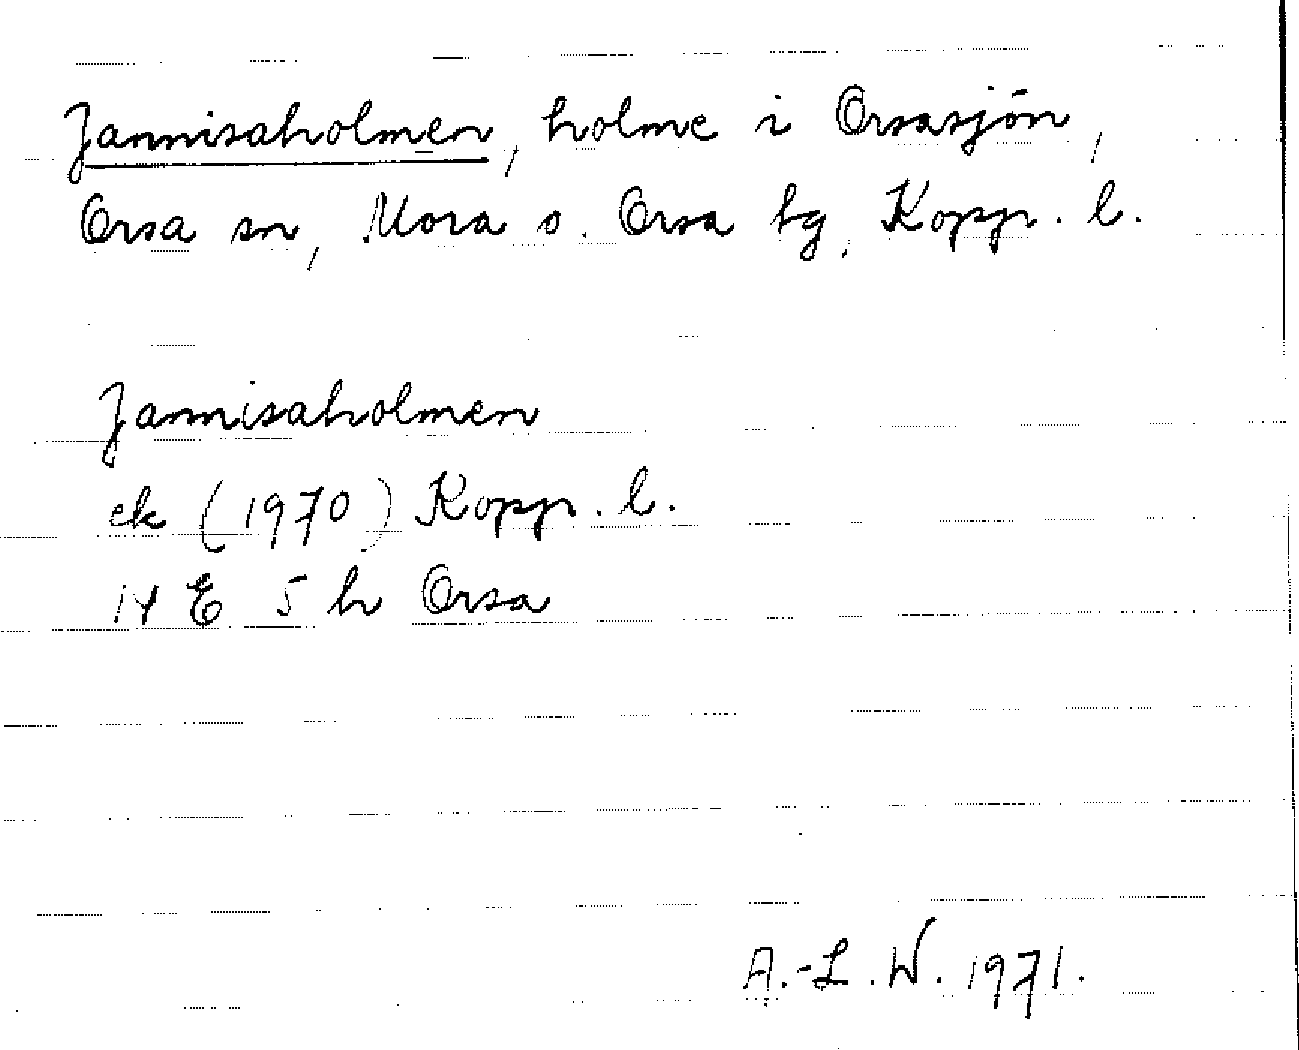 Jannisaholmen, holme i Orsasjön,
Orsa sn, Mora o. Orsa tg, Kopp. l.
Jannisaholmen
ek (1970) Kopp. l.
14 E 5 h Orsa
A.-L. W. 1971.